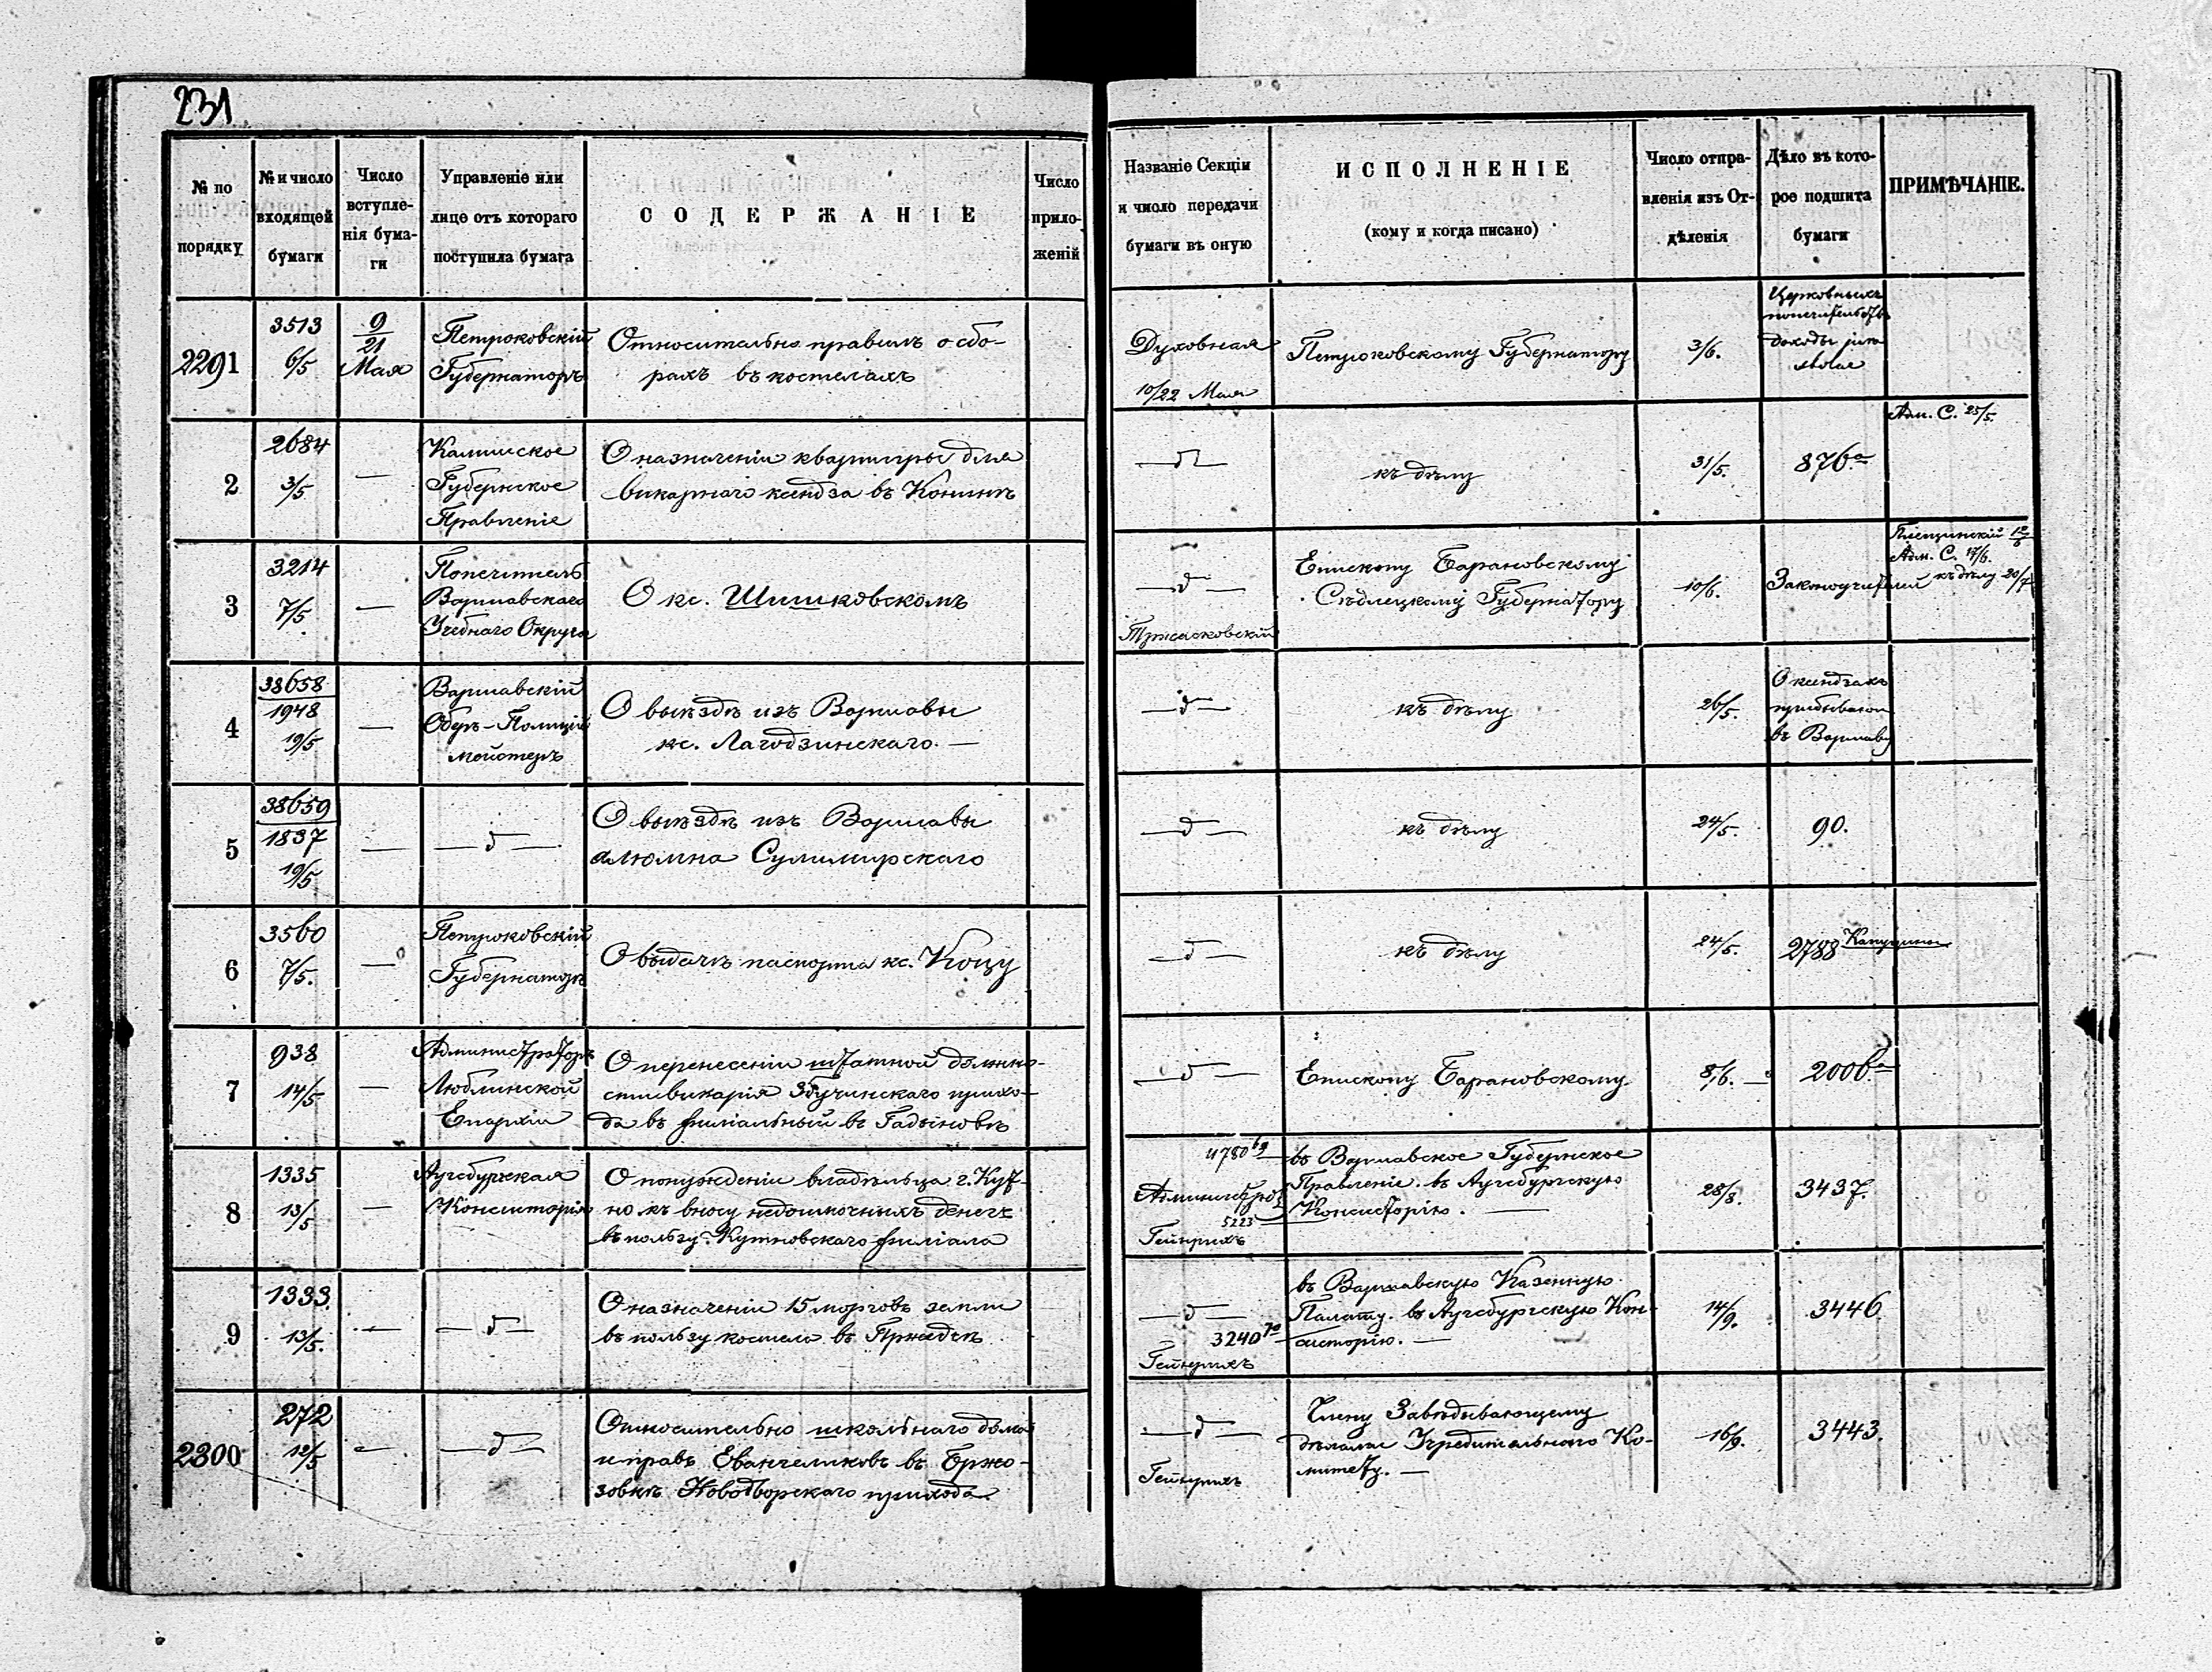 231
№ по порядку
№ и число входящей бумаги
Число вступле-
нія бума-
ги
Управленіе или
лице отъ котораго
поступила бумага
СОДЕРЖАНІЕ
Число
прило-
женій
Названіе Секціи
и число передачи
бумаги въ оную
ИСПОЛНЕНІЕ
(кому и когда писано)
Число отпра-
вленія изъ От-
дѣленія
Дѣло въ кото-
рое подшита
бумаги
ПРИМѢЧАНІЕ.
2291
3513
6/5
9/21
Мая
Петроковскій
Губернаторъ
Относительно правилъ о сбо-
рахъ въ костелахъ
Духовная
10/22 Мая
Петроковскому Губернатору
3/6.
Церковныхъ
попечительствъ
доходы jura
stolae
2
2684
3/5
—
Калишское
Губернское
Правленіе
О назначеніи квартиры для
викарнаго ксендза въ Конинѣ
— д —
къ дѣлу
31/5.
876а
Адм. С. 25/5.
3
3214
7/5
—
Попечитель
Варшавскаго
Учебнаго Округа
О кс. Шишковскомъ
— д —
Тржасковскій
Епископу Барановскому
Сѣдлецкому Губернатору
10/6.
Законоучителей
Адм. С. 17/6.
къ дѣлу 20/7
4
38658
1948
19/5
—
Варшавскій
Оберъ-Полицій
мейстеръ
О выѣздѣ изъ Варшавы
кс. Лагодзинскаго. —
— д —
къ дѣлу
26/5.
О ксендзахъ
прибывающ
въ Варшаву
5
38659
1837
19/5
—
— д —
О выѣздѣ изъ Варшавы
алюмна Сулимирскаго
— д —
къ дѣлу
24/5.
90.
6
3560
7/5.
—
Петроковскій
Губернаторъ
О выдачѣ паспорта кс. Коцу
— д —
къ дѣлу
24/5.
2788 Капуцины
7
938
14/5
—
Администраторъ
Люблинской
Епархіи
О перенесеніи штатной должно-
сти викарія Збучинскаго прихо-
да въ филіальный въ Радыновѣ
— д —
Епископу Барановскому
8/6. —
2006а
8
1335
13/5
—
Аугсбургская
Консисторія
О понужденіи владѣльца г. Кут-
но къ вносу недоимочныхъ денегъ
въ пользу Кутновскаго филіала
4780
Администрат
5223
Гейнрихъ
въ Варшавское Губернское
Правленіе. въ Аугсбургскую
Консисторію. —
28/8.
3437.
9
1333.
13/5.
—
— д —
О назначеніи 15 морговъ земли
въ пользу костела въ Пржедечѣ
— д —
3240
Гейнрихъ
въ Варшавскую Казенную
Палату. въ Аугсбургскую Кон-
систорію. —
14/9.
3446
2300
272
12/5
—
— д —
Относительно школьнаго дома
и правъ Евангеликовъ въ Бржо-
зовкѣ Новодворскаго прихода.
— д —
Гейнрихъ
Члену Завѣдывающему
дѣлами Учредительнаго Ко-
митету. —
16/9.
3443.